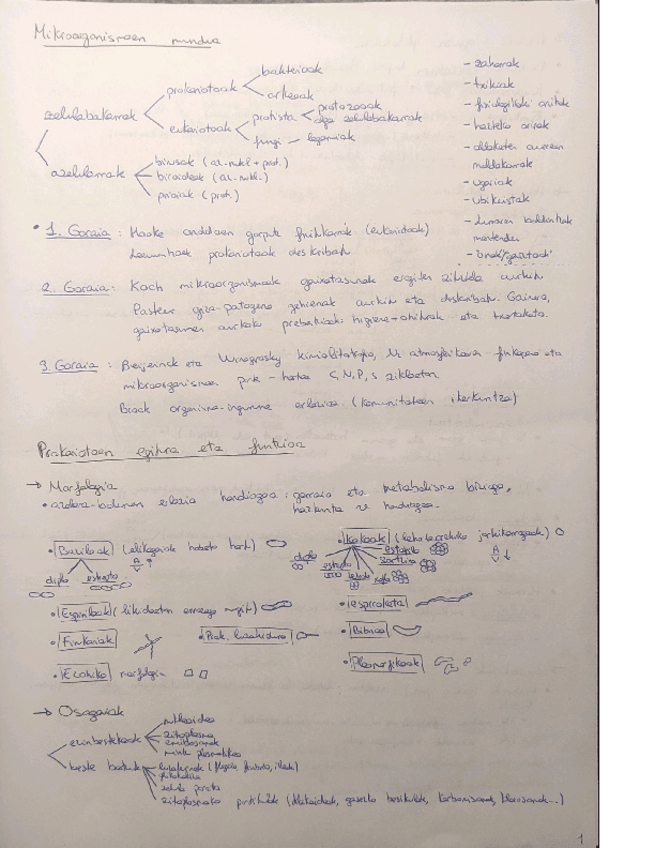 Mikroorganismoen mundua
zelulabakarrak
prokariotoak
bakterioak
arkeoak
eukariotoak
protista
protozooak
alga zelulabakarrak
fungi - legamiak
azelularrak
birusak (az. nukl + prot.)
biroideak (az. nukl.)
prioiak (prot.)
- zaharrak
- txikiak
- fisiologikoki anitzak
- hazteko
- aldaketen aurrean
moldakorrak
- ugariak
- ubikuistak
- Lurraren baldintzak
mantendu
- onak/gaiztoak
• 1. Goraia : Hooke onddoen gorputz fruitukarrak (eukariotoak)
Leeuwenhoek prokariotoak deskribatu
2. Goraia : Koch mikroorganismoek gaixotasunak eragiten zituztela aurkitu
Pasteur giza-patogeno gehienak aurkitu eta deskribatu. Gainera,
gaixotasunen aurkako prebentzioak: higiene-ohiturak eta txertaketa.
3. Goraia : Beijerinck eta Winogradsky kimiolitotrofia, N₂ atmosferikoaren finkapena eta
mikroorganismoen parte-hartzea C, N, P, S zikloetan
Brock organismo-ingurune erlazioa (komunitateen ikerkuntza)
Prokariotoen egitura eta funtzioa
→ Morfologia
• azalera-bolumen erlazio handiagoa : garraio eta metabolismo biziago,
hazkuntza handiagoa.
• Baziloak (elikagaiak hobeto hartu)
A/V ↑
diplo
estrepto
• Kokoak (lehortearekiko jarkikorragoak)
A/V ↓
diplo
estrepto
tetrada
estafilo
sartzina
• Espiriloak (likidoetan errazago mugitu)
• espiroketa
• Finkariak
• Prok.
• Bibrioa
• Ezohiko morfologia
• Pleomorfikoak
→ Osagaiak
ezinbestekoak
nukleoidea
zitoplasma
erribosomak
mintz plasmatikoa
beste batzuk
luzakinak (flageloa, finbria, ileak)
glikokalixa
zelula pareta
zitoplasmako partikulak (inklusioak, gasezko besikulak, karboxisomak, klorosomak...)
1